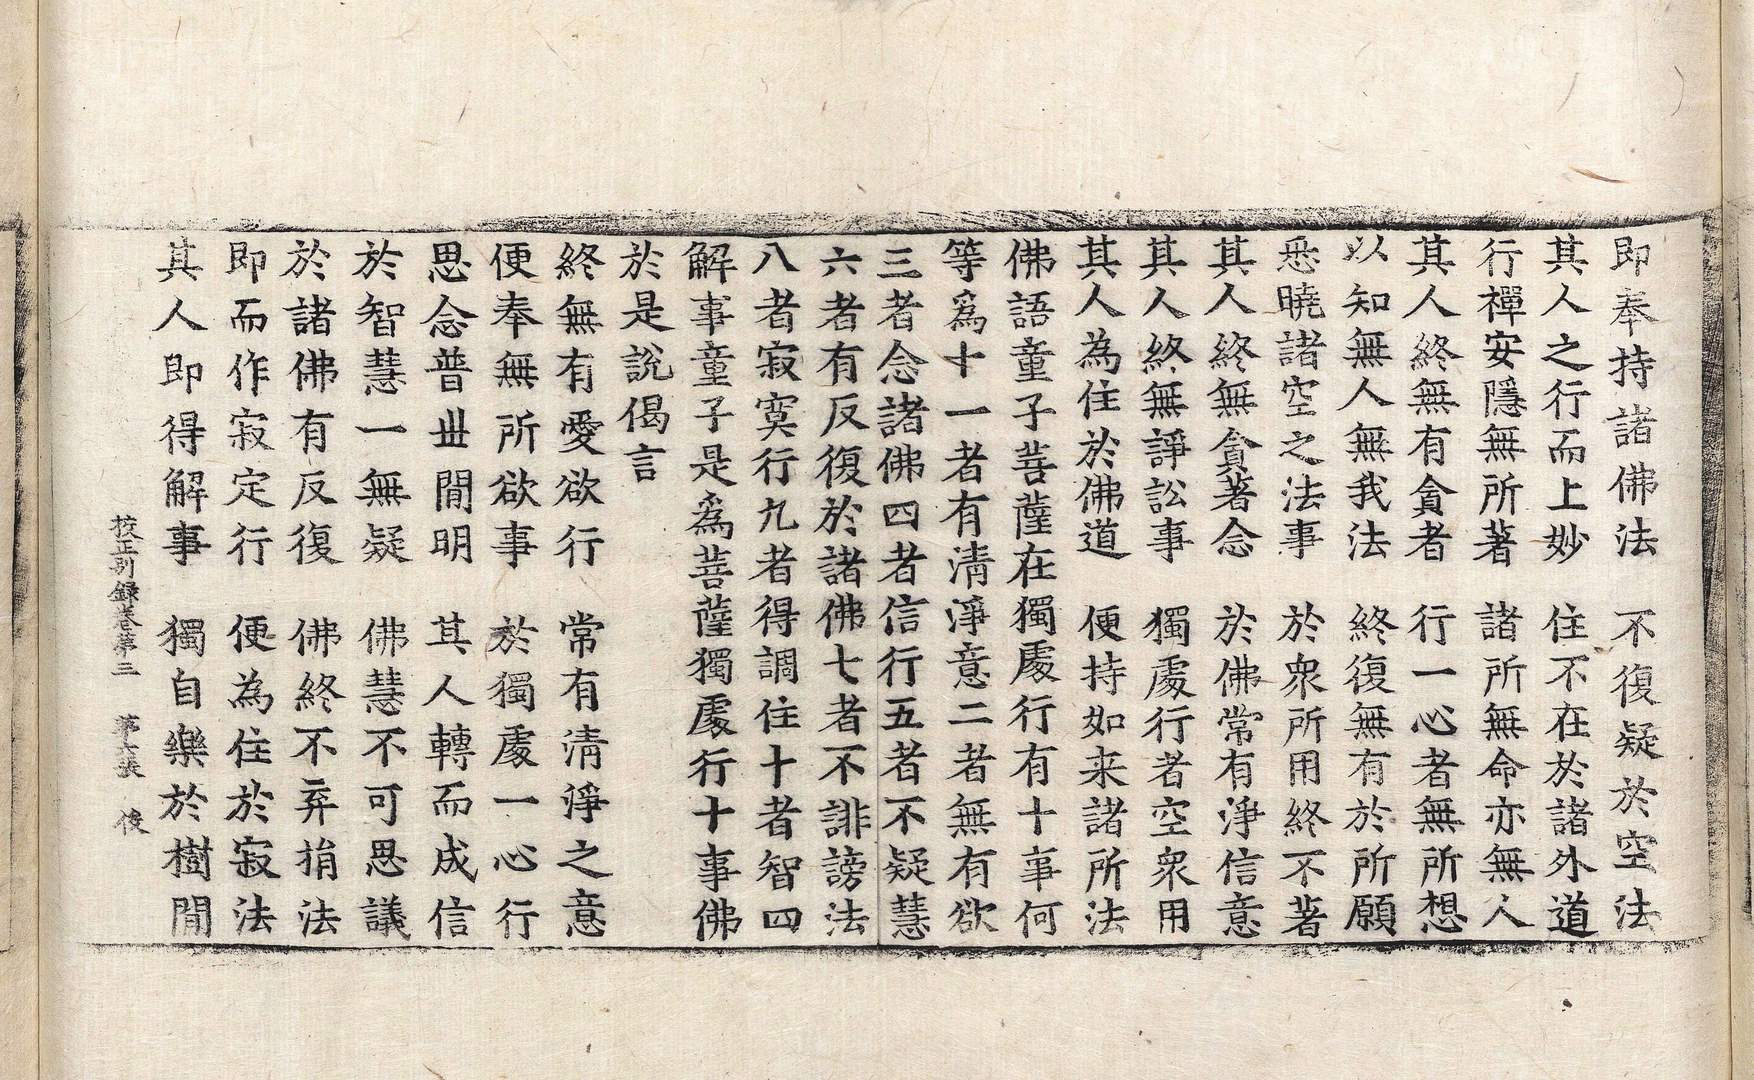 即奉持諸佛法　不復疑於空法
其人之行而上妙　住不在於諸外道
行禪安隱無所著　諸所無命亦無人
其人終無有貪者　行一心者無所想
以知無人無我法　終復無有於所願
悉曉諸空之法事　於衆所用終不著
其人終無貪著念　於佛常有淨信意
其人終無諍訟事　獨處行者空衆用
其人為住於佛道　便持如来諸所法
佛語童子菩薩在獨處行有十事何
等爲十一者有淸淨意二者無有欲
三者念諸佛四者信行五者不疑慧
六者有反復於諸佛七者不誹謗法
八者寂寞行九者得調住十者智四
解事童子是爲菩薩獨處行十事佛
於是說偈言
終無有愛欲行　常有淸淨之意
便奉無所欲事　於獨處一心行
思念普丗閒明　其人轉而成信
於智慧一無疑　佛慧不可思議
於諸佛有反復　佛終不弃捐法
即而作寂定行　便為住於寂法
其人即得解事　獨自樂於樹閒
校正別録卷第三　第六張　俊